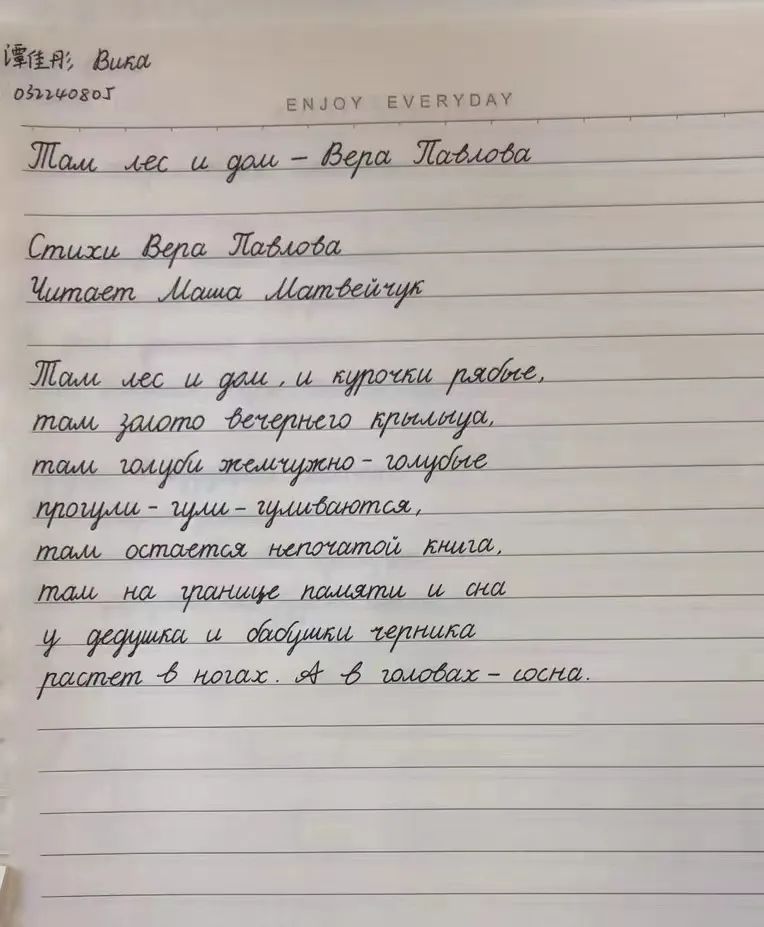 谭佳彤 Вика
032240805
ENJOY EVERYDAY
Там лес и дом – Вера Павлова
Стихи Вера Павлова
Читает Маша Матвейчук
Там лес и дом, и курочки рябые,
там золото вечернего крыльца,
там голуби жемчужно-голубые
прогули-гули-гуливаются,
там остается непочатой книга,
там на границе памяти и сна
у дедушка и бабушки черника
растет в ногах. А в головах – сосна.